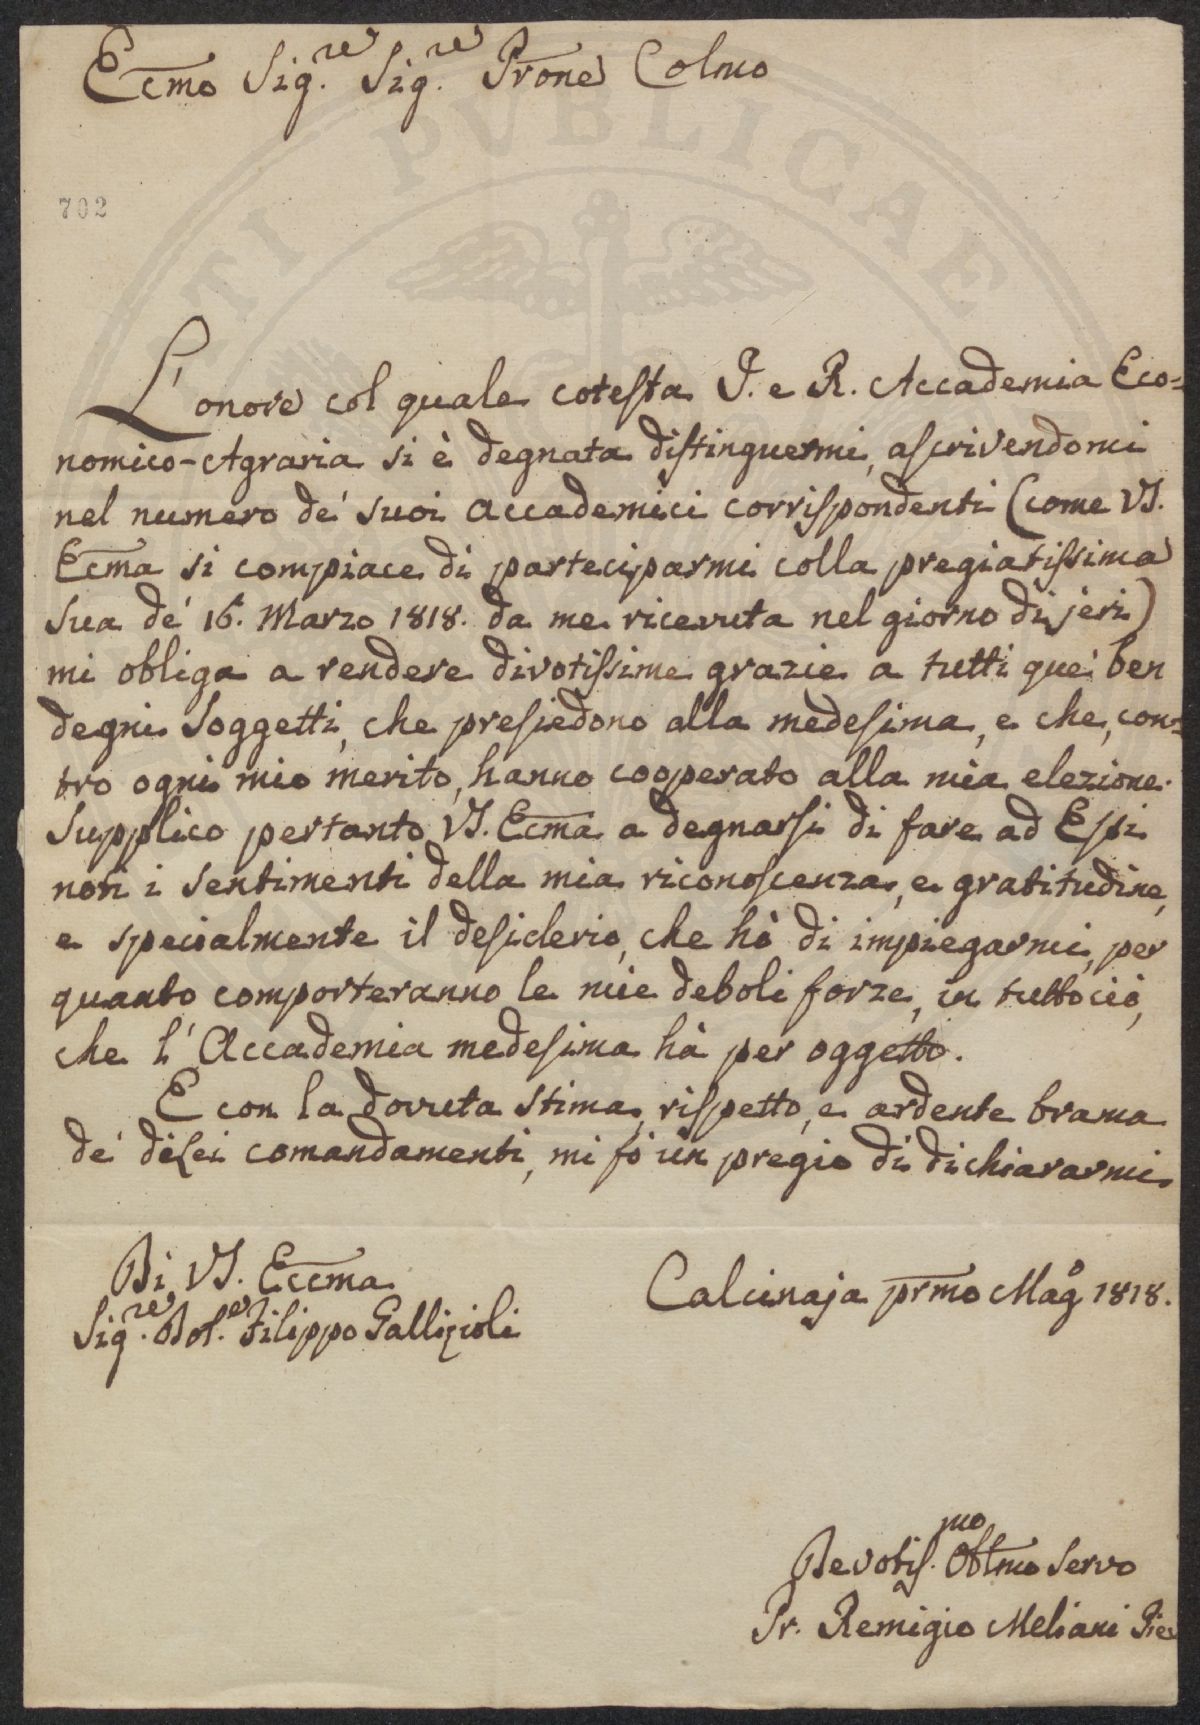 Eccmo Sig.re Sig.re Prone Colmo
702
L'onore col quale cotesta I. e R. Accademia Eco=
nomico-Agraria si è degnata distinguermi, ascrivendomi
nel numero de' suoi Accademici corrispondenti (come VS.
Eccma si compiace di parteciparmi colla pregiatissima
sua de' 16. Marzo 1818. da me ricevuta nel giorno di jeri)
mi obliga a rendere divotissime grazie a tutti que' ben
degni Soggetti, che presiedono alla medesima, e che, con=
tro ogni mio merito, hanno cooperato alla mia elezione.
Supplico pertanto VS. Eccma a degnarsi di fare ad Essi
noti i sentimenti della mia riconoscenza, e gratitudine,
e specialmente il desiderio, che hò di impiegarmi, per
quanto comporteranno le mie deboli forze, in tuttociò,
che l'Accademia medesima hà per oggetto.
E con la dovuta stima, rispetto, e ardente brama
de' di Lei comandamenti, mi fò un pregio di dichiararmi
Di VS. Eccma
Calcinaja prmo Mago 1818.
Sig.re Dot.e Filippo Gallizioli
Devotis.mo Obbmo Servo
Pr. Remigio Meliani
PVBLICAE